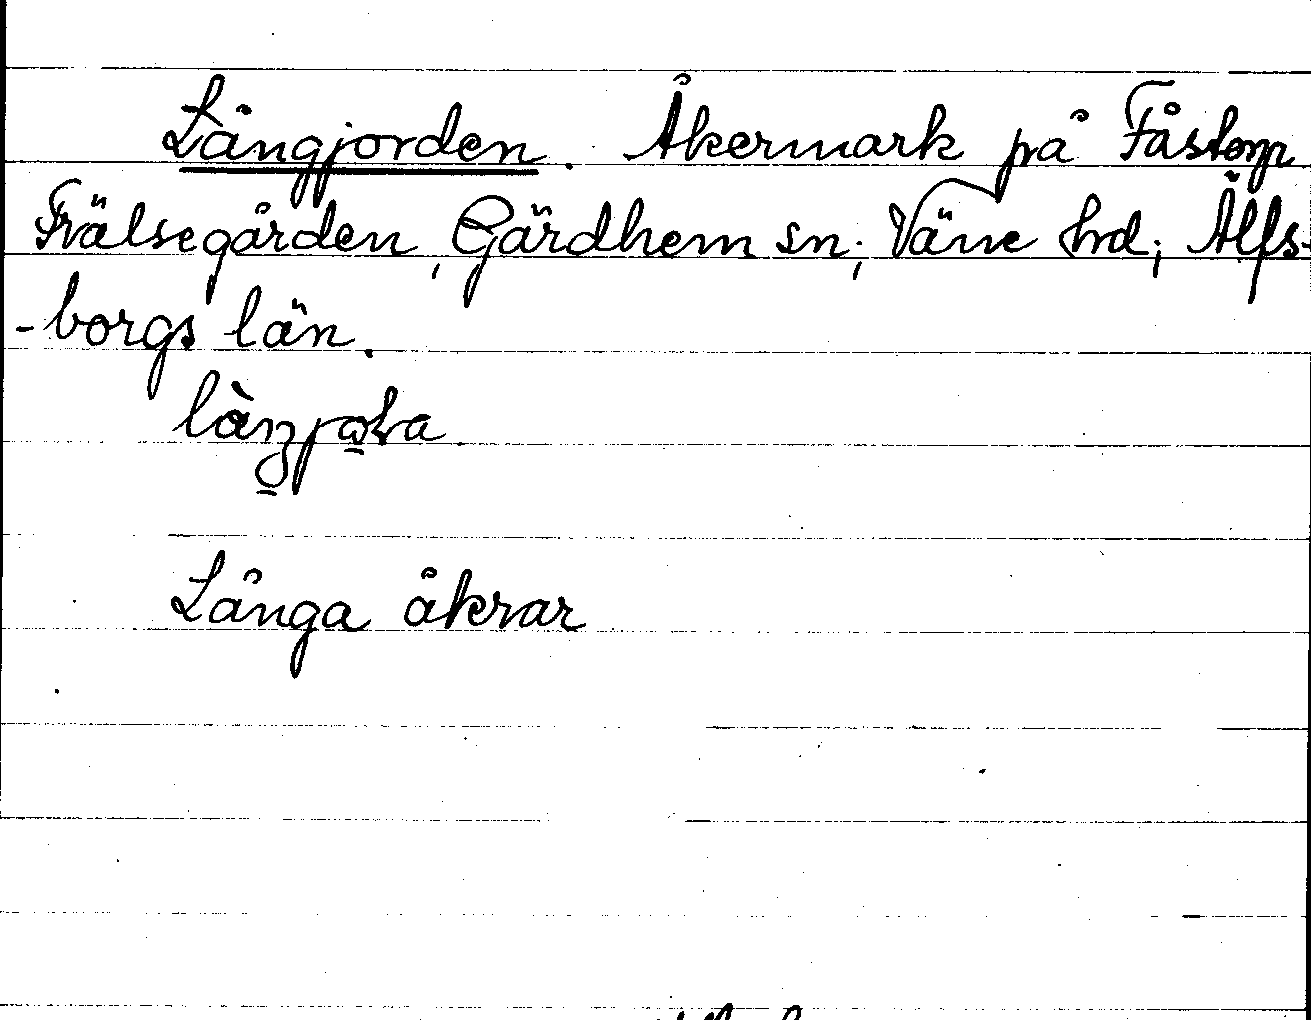 Långjorden. Åkermark på Fåstorp
Frälsegården, Gärdhem sn; Väne hrd; Älfs-
-borgs län.
Långa åkrar